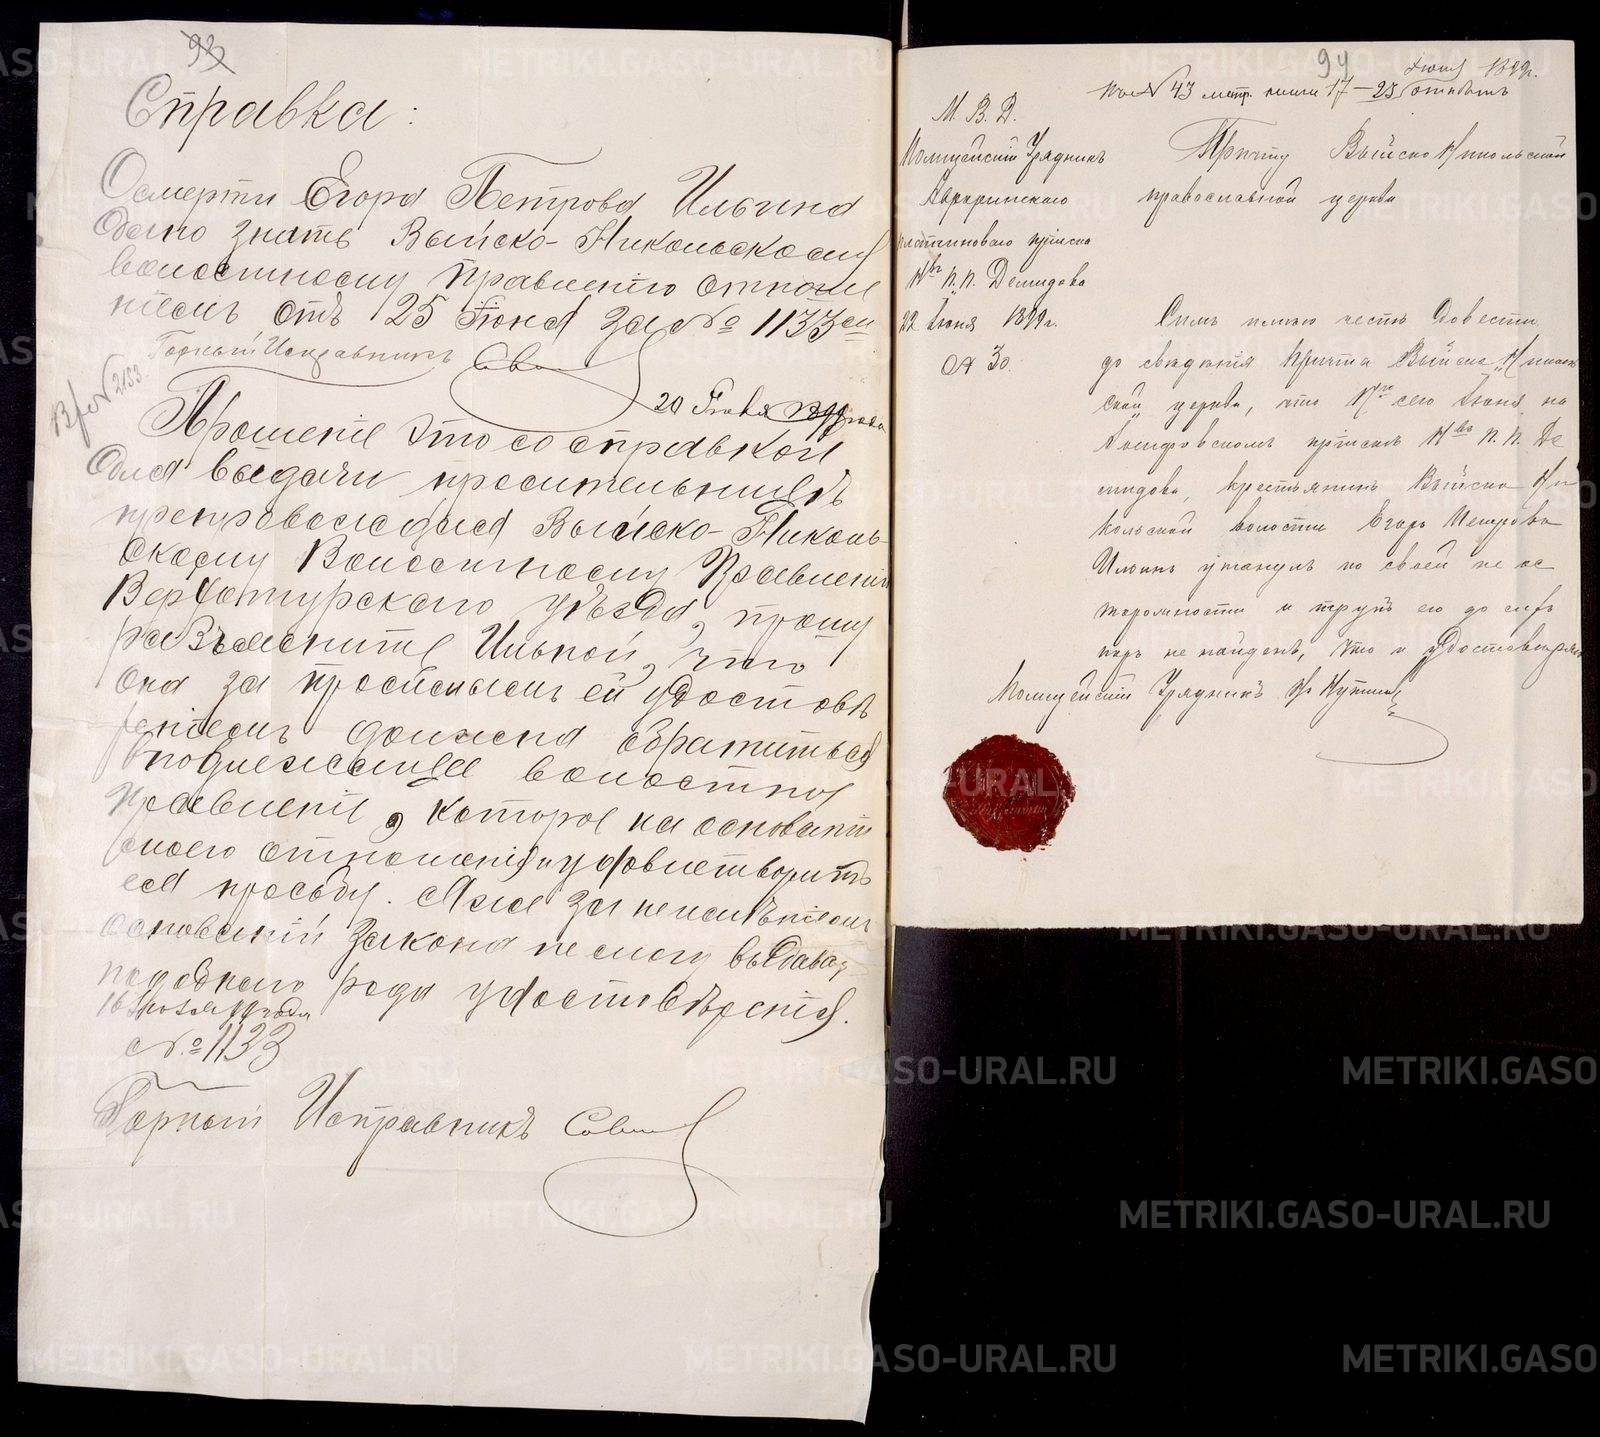 93
Справка:
О смерти Егора Петрова Ильина
дано знать Выйско-Никольскому
волостному Правлению отноше
ніемъ отъ 25 Іюня за № 1133ем
Горный Исправникъ
Вх № 2133
20
Прошеніе это со справкой
для выдачи просительницѣ
препровождая Выйско-Николь-
скому Волостному Правленію
Верхотурскаго уѣзда, прошу
разъяснить Ильиной, что
она за просимымъ ей удостовѣ
реніемъ должна обратиться
в подлежащее волостное
Правленіе, которое на основаніи
моего отношенія и удовлетворитъ
ея просьбу. Я же за неимѣніемъ
основаній закона не могу выдавать
подобнаго рода удостовѣренія.
16
№ 1133
Горный Исправникъ
94
Іюня 1899г.
№ 43 метр. книги 17 - 25
М. В. Д.
Полицейскій Урядникъ
Авроринскаго
платиноваго пріиска
Н-въ П. П. Демидова
22 Іюня 1899г.
№ 30.
Причту Выйско Никольской
православной церкви
Симъ имѣю честь довести
до свѣдѣнія Причта Выйско-Николь
ской церкви, что 17го сего Іюня на
пріискѣ Н-въ П. П. Де
мидова, крестьянинъ Выйско Ни
кольской волости Егоръ Петровъ
Ильинъ утанулъ по своей не ос
торожности и трупъ его до сихъ
поръ не найденъ, что и удостовѣряю
Полицейскій Урядникъ
METRIKI.GASO-URAL.RU